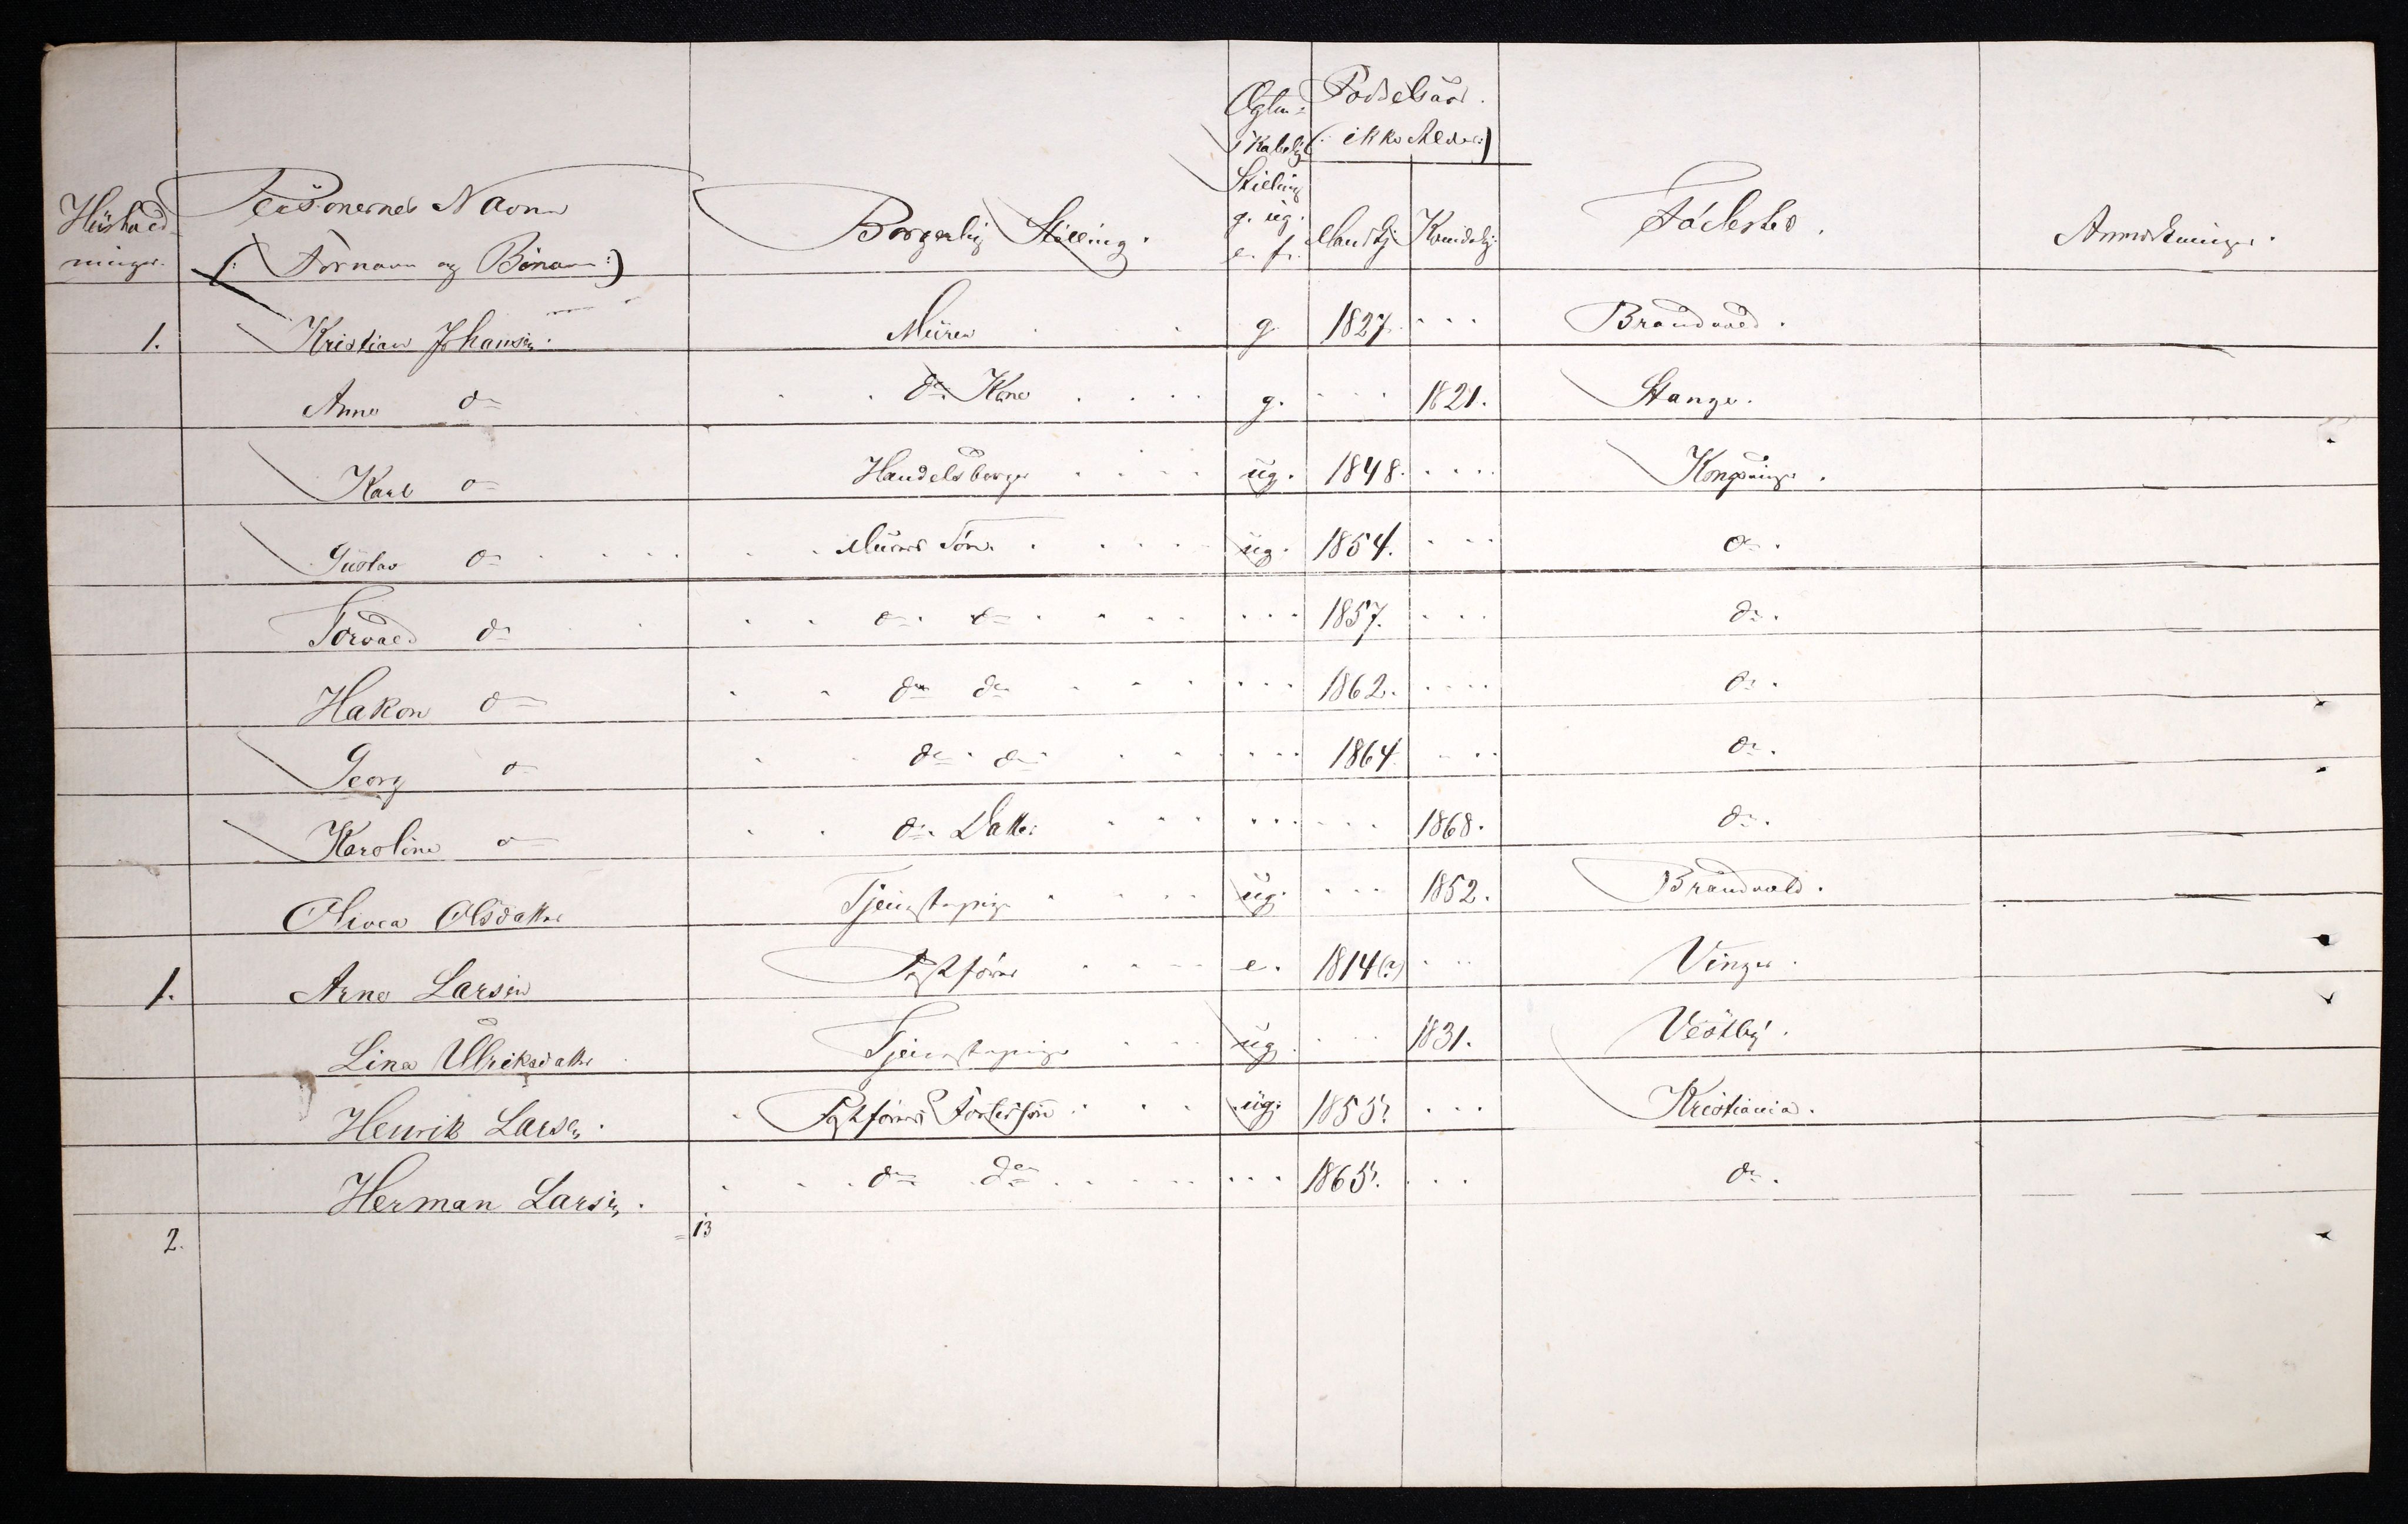 Husholdninger.
Personernes Navne
(: Fornavn og Binavn :)
Borgerlig Stilling.
Ægteskabelig Stilling
g. ug.
e. f.
Fødselsaar.
(: ikke Alder :)
Mandkj. Kvindekj.
Fødested.
Anmærkninger.
1. Kristian Johansen. Murer g. 1827. Brandvold.
Anne do do Kone g. 1821. Stange.
Karl do Handelsborger ug. 1848. Kongsvinger.
Gustav do Murers Søn ug. 1854. do.
Torvald do do do 1857. do.
Hakon do do do 1862. do.
Georg do do do 1864. do.
Karoline do do Datter 1868. do.
Olivea Olsdatter Tjenestepige ug. 1852. Brandvold.
1. Arne Larsen Postfører e. 1814(?) Vinger.
Lina Ulriksdatter Tjenestepige ug. 1831. Vestby.
Henrik Larsen. Postførers Fostersøn ug. 1855. Kristiania.
Herman Larsen. do do 1865. do.
2. = 13